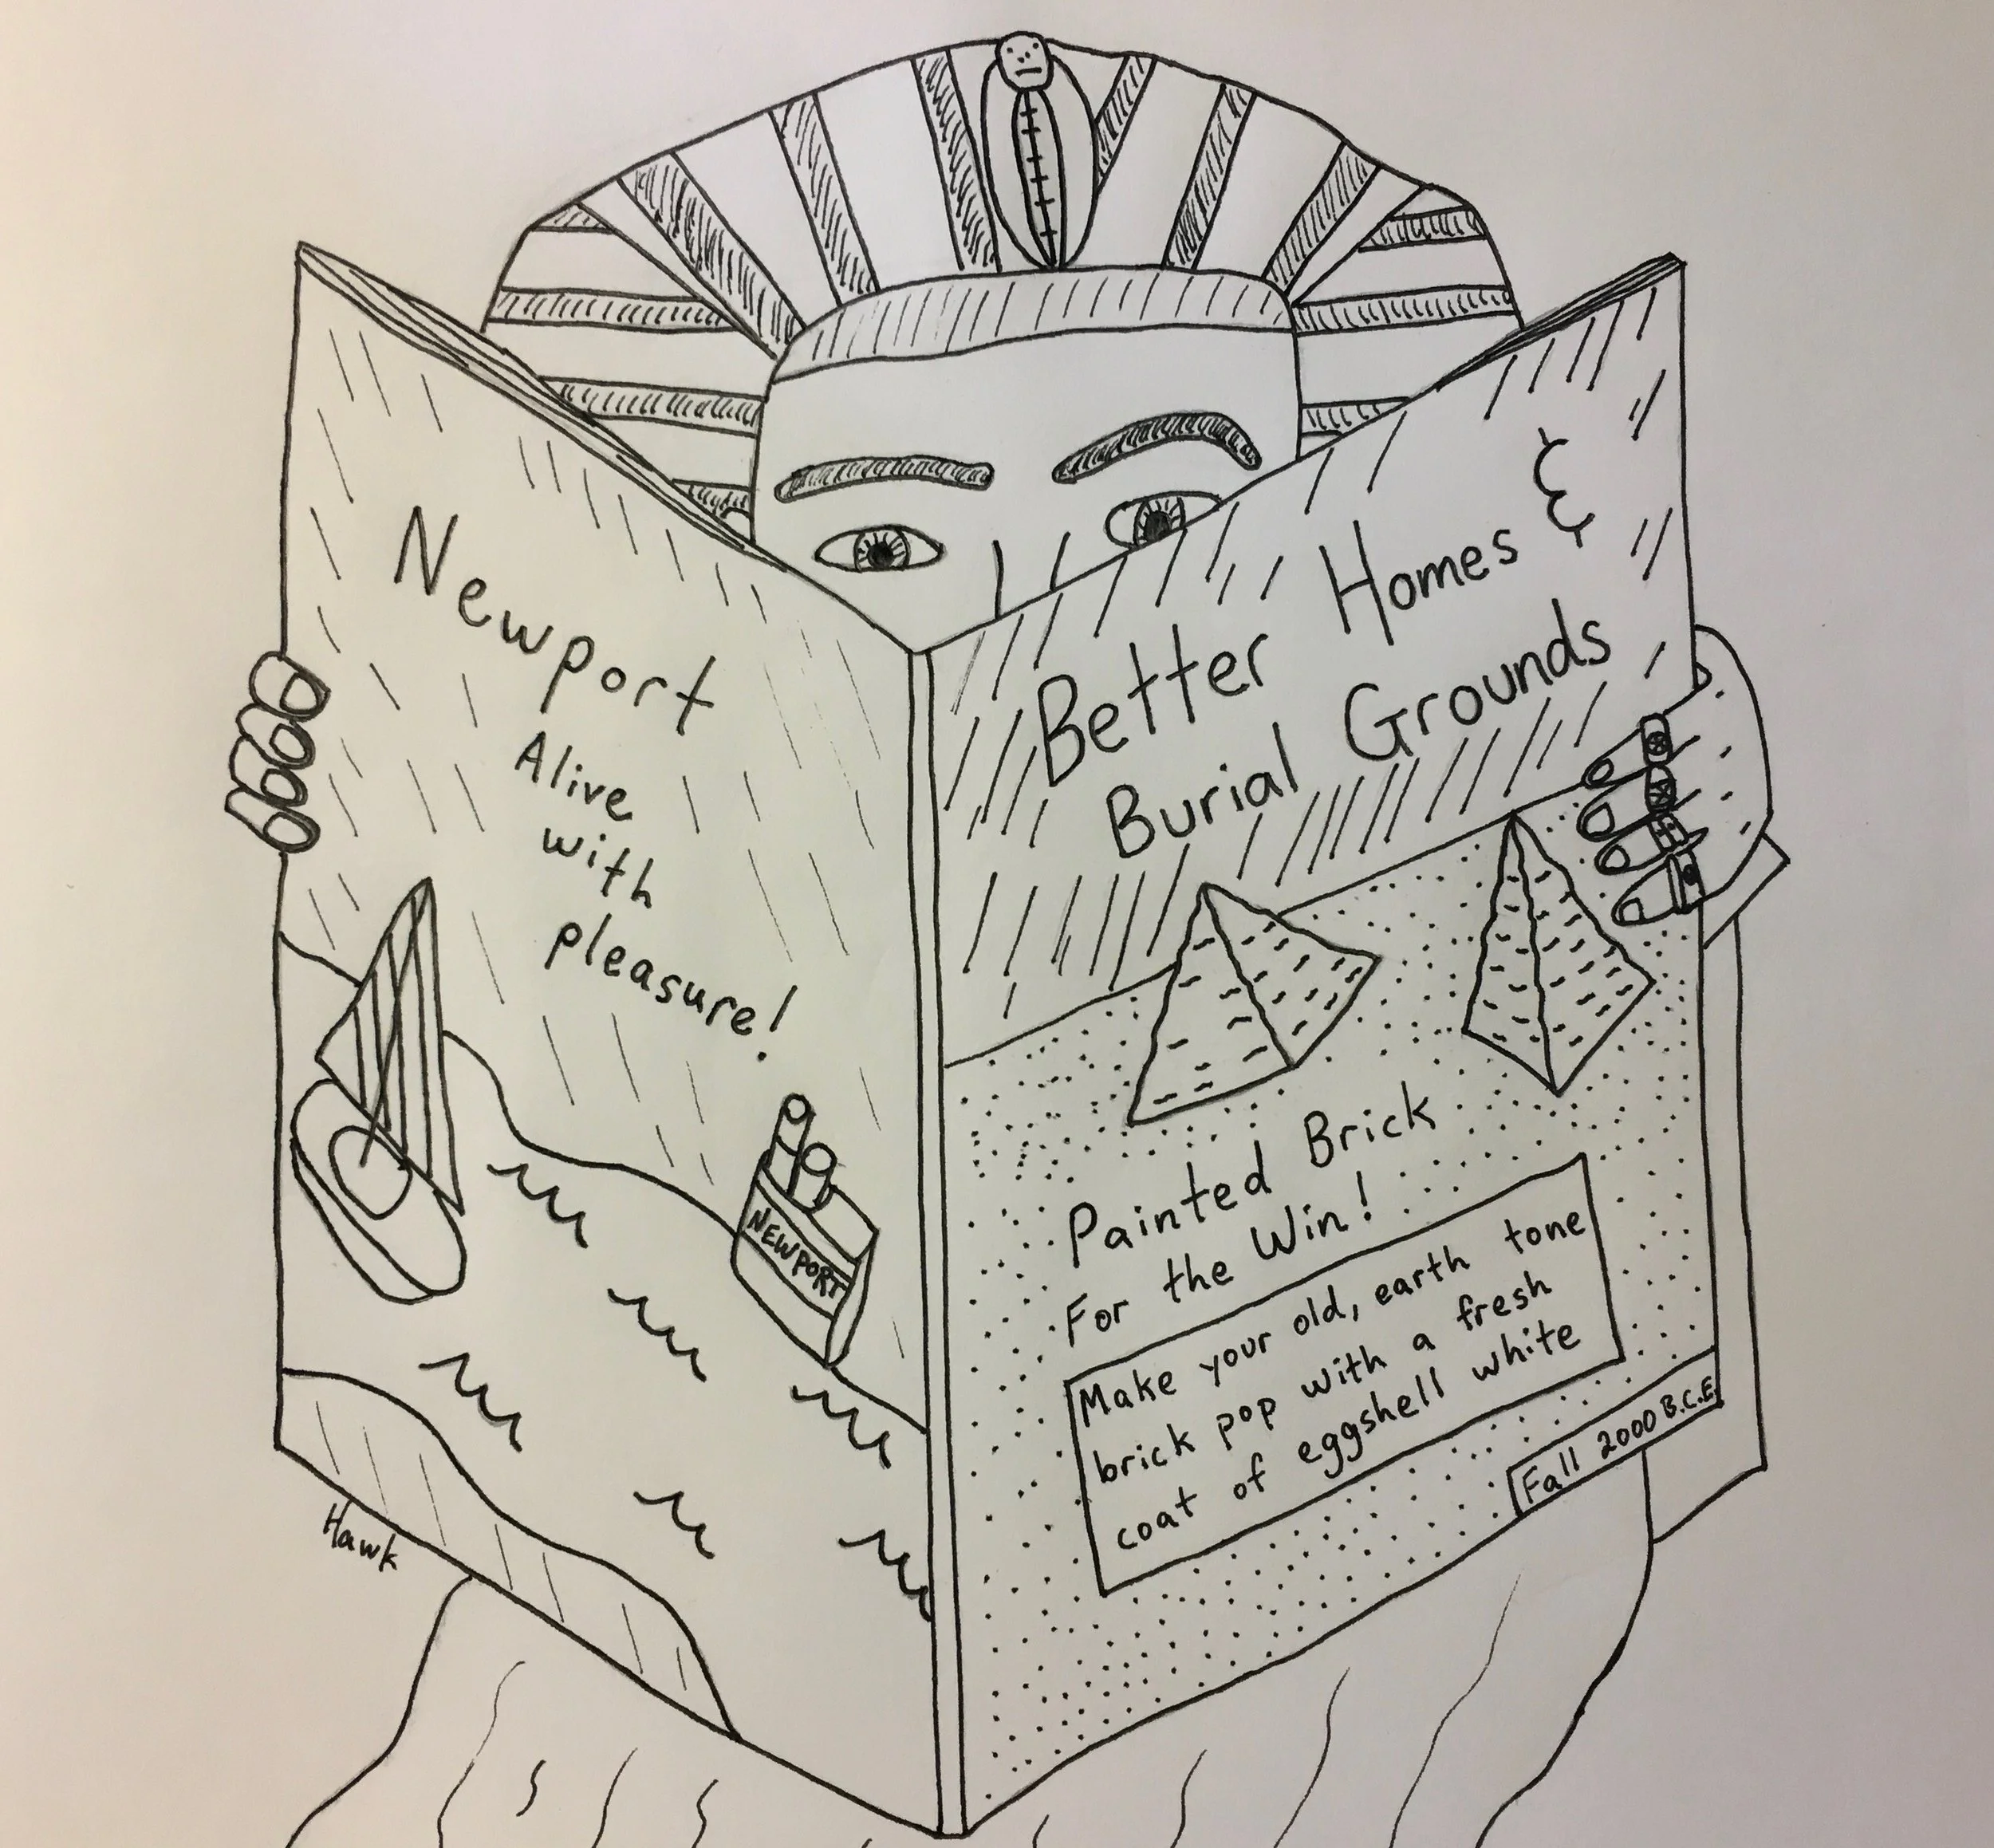 Newport
Alive
with
pleasure!
NEWPORT
Hawk
Better Homes &
Burial Grounds
Painted Brick
For the Win!
Make your old, earth tone
brick pop with a fresh
coat of eggshell white
Fall 2000 B.C.E.